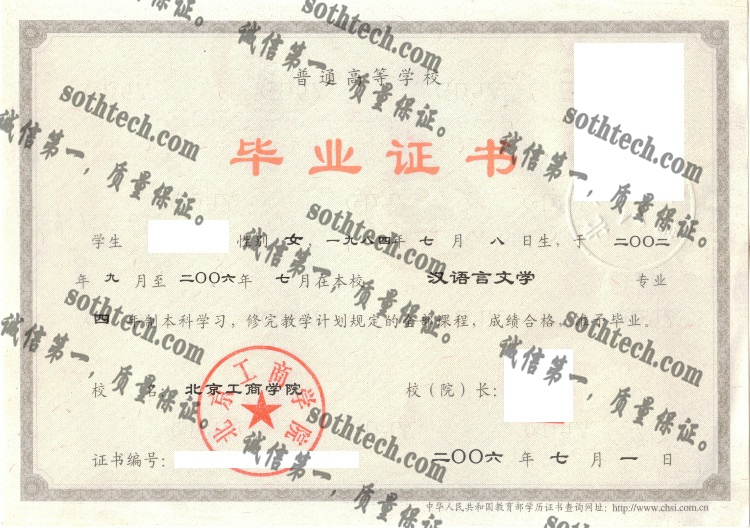 普通高等学校
毕业证书
学生 性别 女，一九八四年 七 月 八 日生，于 二〇〇二
年 九 月至 二〇〇六年 七月在本校 汉语言文学 专业
四 年制本科学习，修完教学计划规定的全部课程，成绩合格，准予毕业。
校 名：北京工商学院 校（院）长：
证书编号： 二〇〇六 年 七 月 一 日
中华人民共和国教育部学历证书查询网址：http://www.chsi.com.cn
北京工商学院
sothtech.com
诚信第一，质量保证。
sothtech.com
诚信第一，质量保证。
sothtech.com
诚信第一，质量保证。
sothtech.com
诚信第一，质量保证。
sothtech.com
诚信第一，质量保证。
sothtech.com
诚信第一，质量保证。
sothtech.com
诚信第一，质量保证。